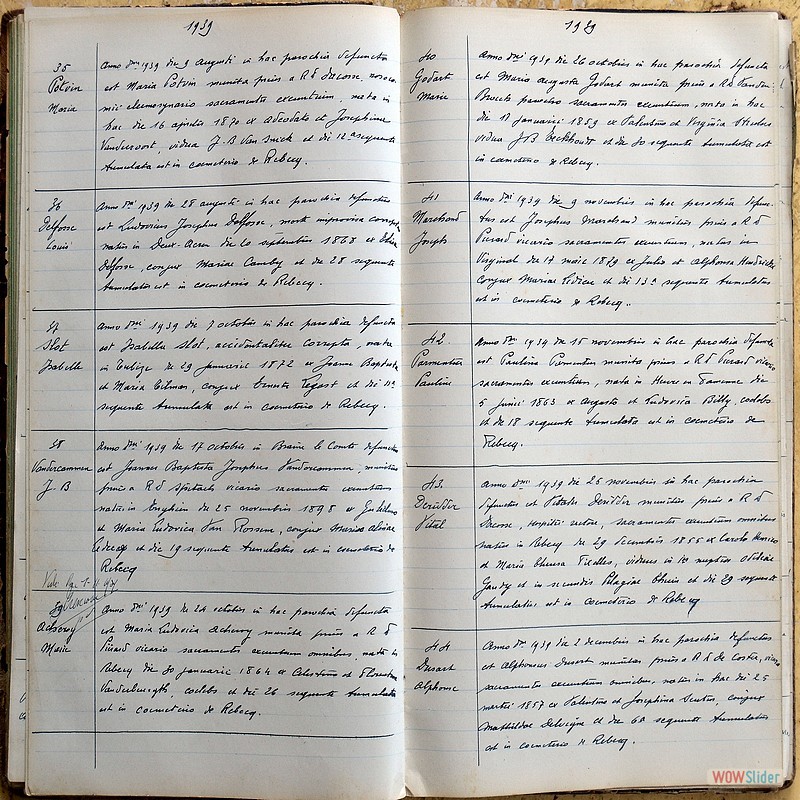 1939
35
Potvin
Maria
Anno dni 1939 die 9 augusti in hac parochia defuncta
est Maria Potvin munita prius a R d Dacosse, nosoco
mii eleemosynario sacramentis exeuntium, nata in
hac die 16 aprilis 1870 ex Adeodato et Josephina
Vandervoort, vidua J. B Van Snick et die 12a sequente
tumulata est in coemeterio de Rebecq.
36
Delfosse
Louis
Anno dni 1939 die 25 augusti in hac parochia defunctus
est Ludovicus Josephus Delfosse, morte improvisa correptus
natus in Deux-Acren die 20 septembris 1863 ex
Delfosse, conjux Mariae Canby et die 28 sequente
tumulatus est in coemeterio de Rebecq.
37
Slot
Isabelle
Anno dni 1939 die 7 octobris in hac parochia defuncta
est Isabella Slot, accidentaliter correpta, nata
in die 29 januarii 1872 ex Joanne Baptista
et Maria conjux Ernesti et die 11a
sequente tumulata est in coemeterio de Rebecq.
38
Vandercammen
J. B
Anno dni 1939 die 17 octobris in Braine le Comte defunctus
est Joannes Baptista Josephus Vandercammen, munitus
prius a R d vicario sacramentis exeuntium
natus in Enghien die 25 novembris 1898 ex Guilielmo
et Maria Ludovica Van Rossem, conjux Maria
et die 19 sequente tumulatus est in coemeterio de
Rebecq
39
Acheroy
Marie
Anno dni 1939 die 24 octobris in hac parochia defuncta
est Maria Ludovica Acheroy munita prius a R d
Pierard vicario sacramentis exeuntium omnibus, nata in
Rebecq die 30 januarii 1864 ex Celestino et Florentina
coelebs et die 26 sequente tumulata
est in coemeterio de Rebecq.
1939
40
Godart
Marie
Anno dni 1939 die 26 octobris in hac parochia defuncta
est Maria Augusta Godart munita prius a R d Vanden
Broeck parocho sacramentis exeuntium, nata in hac
die 17 januarii 1859 ex Valentino et Virginia
vidua J B Eeckhoudt et die 30 sequente tumulata est
in coemeterio de Rebecq.
41
Marchand
Joseph
Anno dni 1939 die 9 novembris in hac parochia defunc
tus est Josephus Marchand munitus prius a R d
Pierard vicario sacramentis exeuntium, natus in
Virginal die 17 maii 1879 ex Julio et Alphonsa
conjux Mariae et die 13a sequente tumulatus
est in coemeterio de Rebecq.
42
Parmentier
Pauline
Anno dni 1939 die 15 novembris in hac parochia defuncta
est Paulina Parmentier munita prius a R d Pierard vicario
sacramentis exeuntium, nata in Heure en Famenne die
5 junii 1863 ex Augusto et Ludovica Billy coelebs
et die 18 sequente tumulata est in coemeterio de
Rebecq.
43
Deridder
Vital
Anno dni 1939 die 25 novembris in hac parochia
defunctus est Vitalis Deridder munitus prius a R d
Dacosse, sacramentis exeuntium omnibus
natus in Rebecq die 29 decembris 1855 ex Carolo
et Maria Theresa viduus in 1is nuptiis
et in secundis Pelagiae et die 29 sequente
tumulatus est in coemeterio de Rebecq
44
Dusart
Alphonse
Anno dni 1939 die 2 decembris in hac parochia defunctus
est Alphonsus Dusart munitus prius a R d De Coster, vicario
sacramentis exeuntium omnibus, natus in hac die 25
martii 1857 ex Valentino et Josephina conjux
Mathildae et die 6a sequente tumulatus
est in coemeterio de Rebecq.
WOWSlider